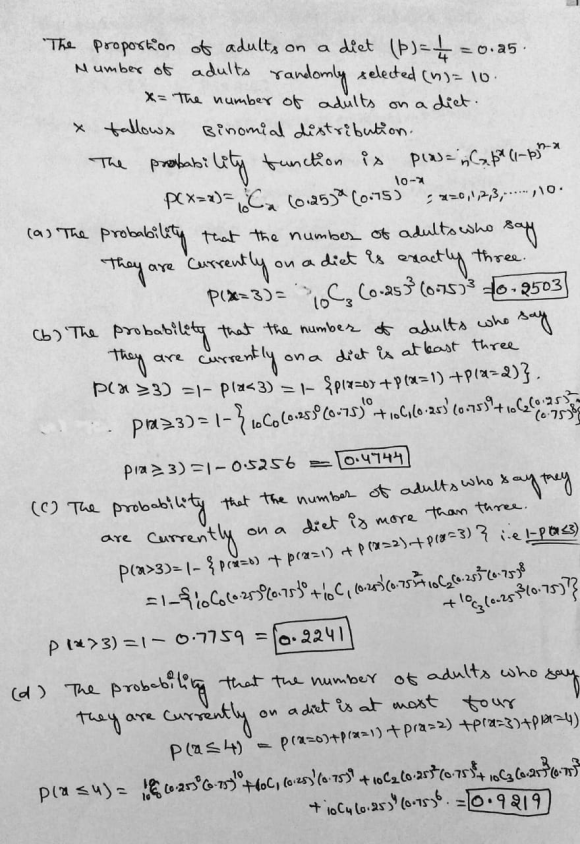 The proportion of adults on a diet (p) = 1/4 = 0.25.
Number of adults randomly selected (n) = 10.
X = The number of adults on a diet.
x follows Binomial distribution.
The probability function is p(x) = nCx p^x (1-p)^n-x
P(X=x) = 10Cx (0.25)^x (0.75)^10-x ; x=0,1,2,3,......,10.
(a) The probability that the number of adults who say
they are currently on a diet is exactly three.
P(X=3) = 10C3 (0.25)^3 (0.75)^3 = 0.2503
(b) The probability that the number of adults who say
they are currently on a diet is at least three
P(x ≥3) = 1- P(x<3) = 1- {P(x=0) + P(x=1) + P(x=2)}.
P(x≥3) = 1- { 10C0 (0.25)^0 (0.75)^10 + 10C1 (0.25)^1 (0.75)^9 + 10C2 (0.25)^2 (0.75)^8}
P(x≥3) = 1-0.5256 = 0.4744
(C) The probability that the number of adults who say they
are currently on a diet is more than three.
P(x>3) = 1- {P(x=0) + P(x=1) + P(x=2) + P(x=3)} i.e 1-P(x≤3)
= 1- {10C0 (0.25)^0 (0.75)^10 + 10C1 (0.25)^1 (0.75)^9 + 10C2 (0.25)^2 (0.75)^8
+ 10C3 (0.25)^3 (0.75)^7}
P(x>3) = 1- 0.7759 = 0.2241
(d) The probability that the number of adults who say
they are currently on a diet is at most four
P(x≤4) = P(x=0) + P(x=1) + P(x=2) + P(x=3) + P(x=4)
P(x≤4) = 10C0 (0.25)^0 (0.75)^10 + 10C1 (0.25)^1 (0.75)^9 + 10C2 (0.25)^2 (0.75)^8 + 10C3 (0.25)^3 (0.75)^7
+ 10C4 (0.25)^4 (0.75)^6. = 0.9219